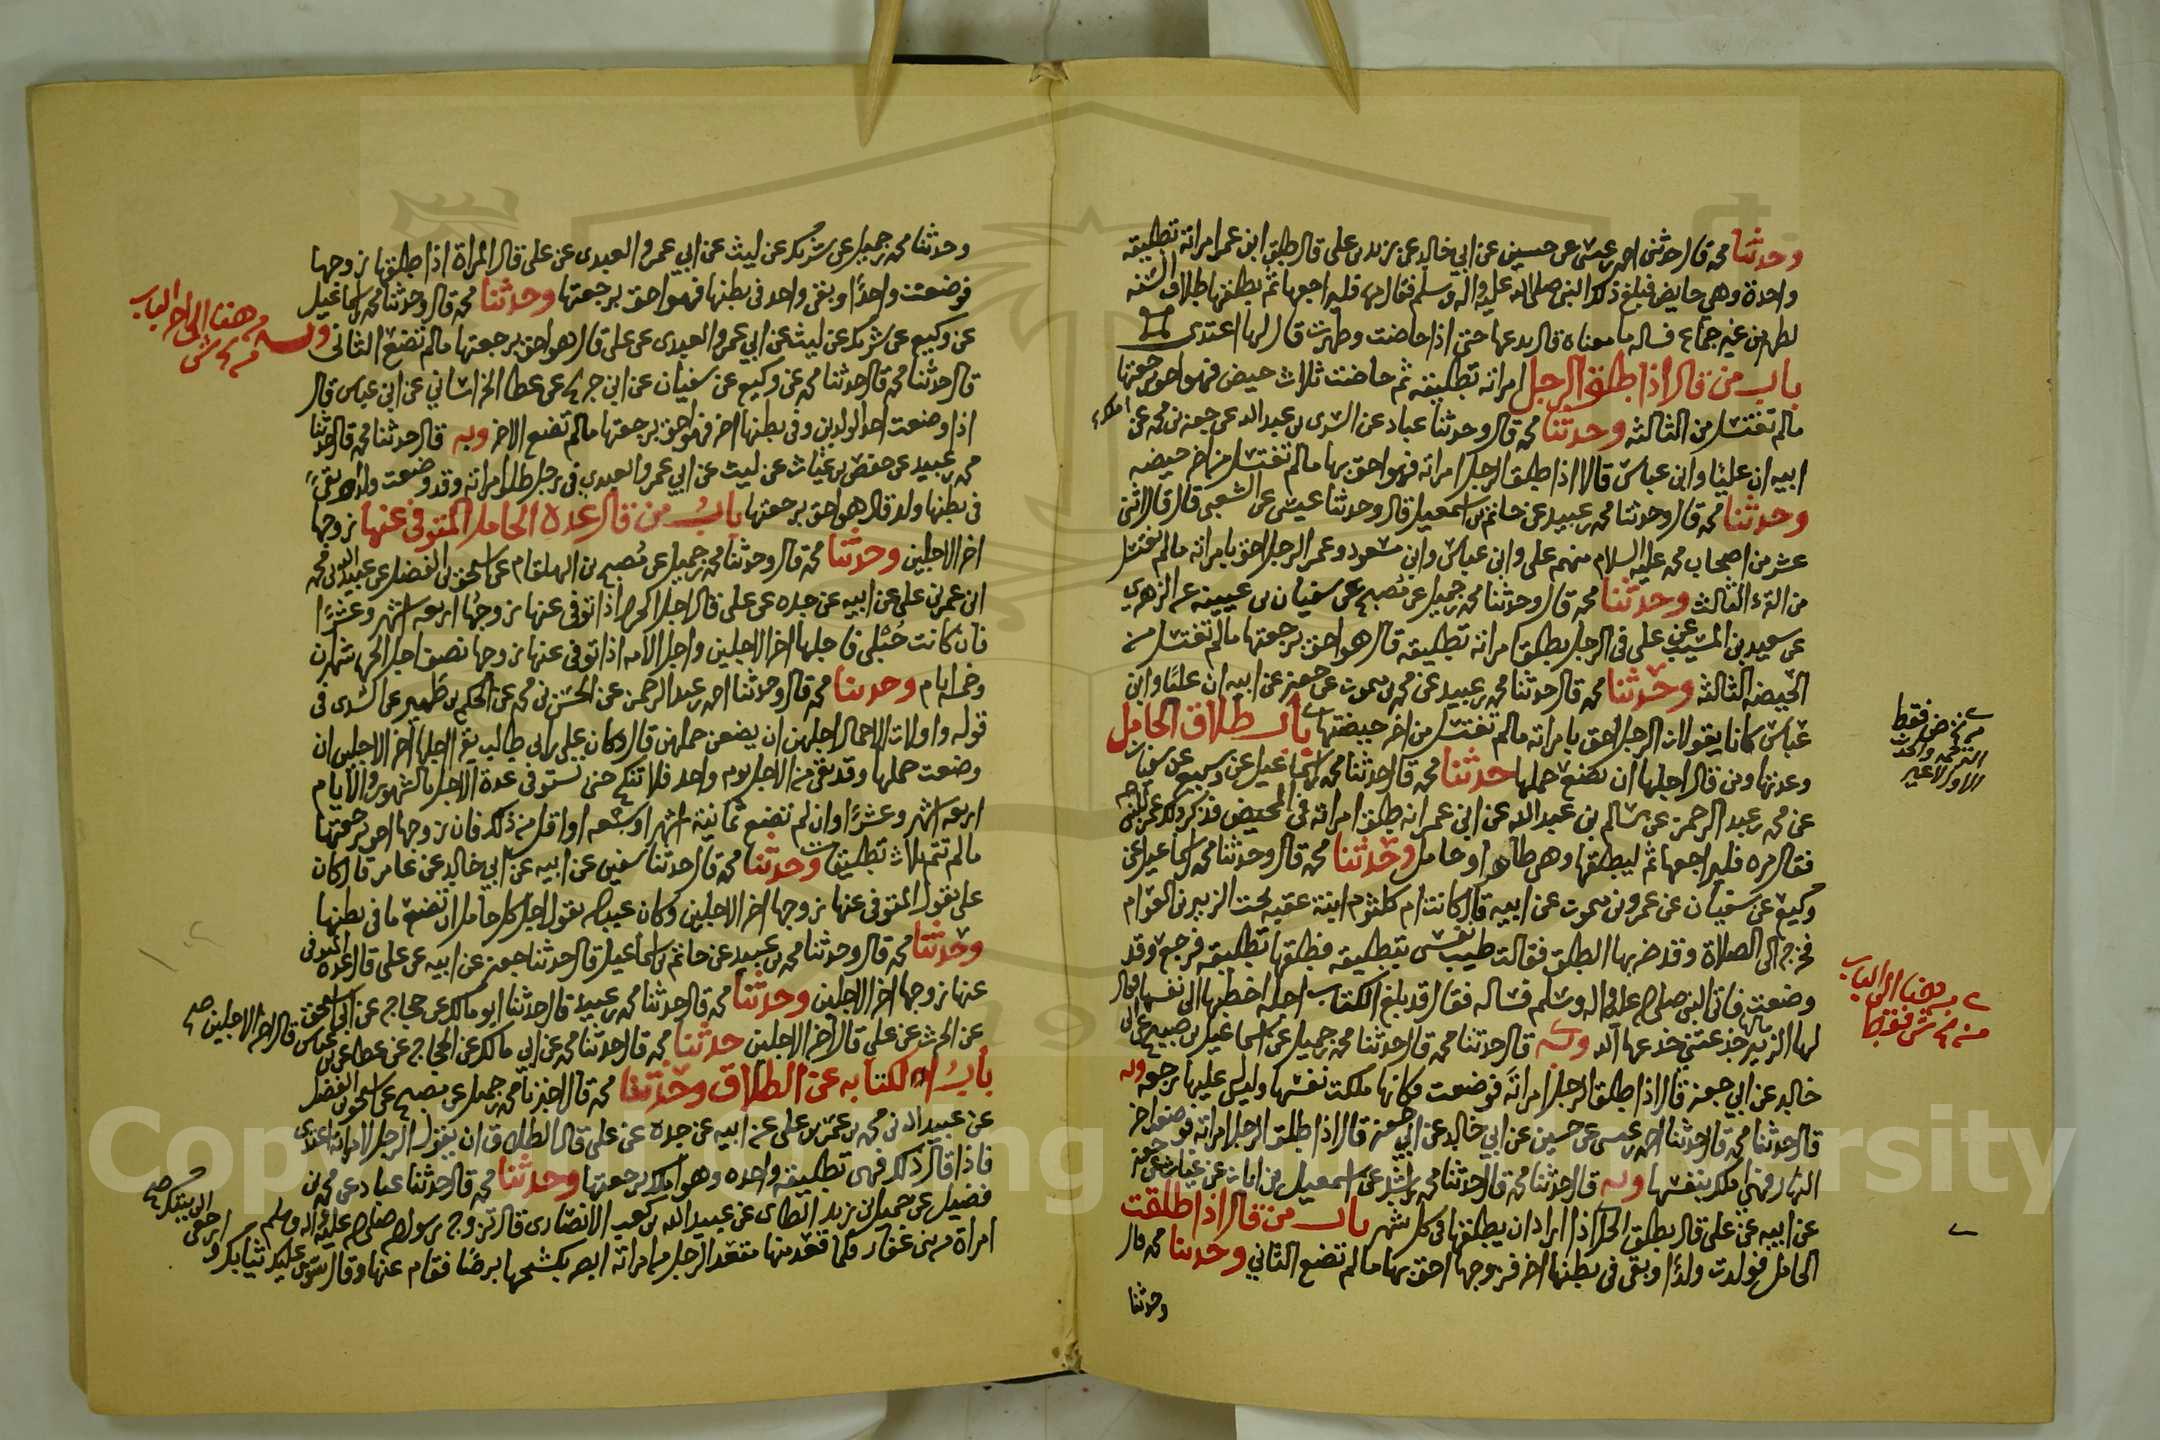 وحدثنا محمد قال حدثني احمد بن عيسى عن حسين عن ابي خالد عن زيد بن علي قال طلق ابن عمر امراته تطليقة
واحدة وهي حايض فبلغ ذلك النبي صلى الله عليه واله وسلم فقال مره فليراجعها ثم يطلقها طلاق السنه
لطهر من غير جماع فساله ما معناه قال يدعها حتى اذا حاضت وطهرت قال لها اعتدي
باب من قال اذا طلق الرجل امراته تطليقه ثم حاضت ثلاث حيض فهو احق برجعتها
مالم تغتسل من الثالثه وحدثنا محمد قال وحدثنا عباد عن السري بن عبد الله عن جعفر بن محمد عن
ابيه ان عليا وابن عباس قالا اذا طلق الرجل امراته فهو احق بها مالم تغتسل من اخر حيضه
وحدثنا محمد قال وحدثنا محمد بن عبيد عن حاتم بن اسمعيل قال وحدثنا عيسى عن الشعبي قال قال اثنى
عشر من اصحاب محمد عليه السلام منهم علي وابن عباس وابن مسعود وعمر الرجل احق بامراته مالم تغتسل
من القرء الثالث وحدثنا محمد قال وحدثنا محمد بن جميل عن مصبح عن سفيان بن عيينه عن الزهري
عن سعيد بن المسيب عن علي في الرجل يطلق امراته تطليقه قال هو احق برجعتها مالم تغتسل من
الحيضه الثالثه وحدثنا محمد قال حدثنا محمد بن عبيد عن محمد بن ميمون عن جعفر عن ابيه ان عليا وابن
عباس كانا يقولان الرجل احق بامراته مالم تغتسل من اخر حيضتها باب طلاق الحامل
وعدتها ومن قال اجلها ان تضع حملها حدثنا محمد قال حدثنا محمد بن اسماعيل عن وكيع عن سفيان
عن محمد بن عبد الرحمن عن سالم بن عبد الله عن ابن عمر انه طلق امراته في الحيض فذكر ذلك عمر للنبي
فقال مره فليراجعها ثم ليطلقها وهي طاهر او حامل وحدثنا محمد قال وحدثنا محمد بن اسماعيل عن
وكيع عن سفيان عن عمرو بن ميمون عن ابيه قال كانت ام كلثوم ابنة عقبه تحت الزبير بن العوام
فخرج الى الصلاة وقد ضربها الطلق فقالت طيب نفسي بتطليقه فطلقها تطليقه فرجع وقد
وضعت فاتى النبي صلى الله عليه واله وسلم فساله فقال قد بلغ الكتاب اجله اخطبها الى نفسها فقال
لها الزبير خدعتني خدعها الله وبه قال حدثنا محمد قال حدثنا محمد بن جميل عن اسماعيل بن صبيح عن ابي
خالد عن ابي جعفر قال اذا طلق الرجل امراته فوضعت فكانها ملكت نفسها وليس عليها رجعه وبه
قال حدثنا محمد قال حدثنا احمد بن عيسى عن حسين عن ابي خالد عن ابي جعفر قال اذا طلق الرجل امراته فوضعت اخر
النهار فهي املك بنفسها وبه قال حدثنا محمد قال حدثنا محمد بن راشد عن اسمعيل بن ابان عن غياث عن جعفر
عن ابيه عن علي قال يطلق الحامل اذا اراد ان يطلقها في كل شهر باب من قال اذا طلقت
الحامل فولدت ولدا وبقي في بطنها اخر فزوجها احق بها مالم تضع الثاني وحدثنا محمد قال
وحدثنا
وحدثنا محمد بن جميل عن شريك عن ليث عن ابي عمرو العبدي عن علي قال المراة اذا طلقها زوجها
فوضعت واحدا وبقي واحد في بطنها فهو احق برجعتها وحدثنا محمد قال وحدثنا محمد بن اسماعيل
عن وكيع عن شريك عن ليث عن ابي عمرو العبدي عن علي قال هو احق برجعتها مالم تضع الثاني وبه
قال حدثنا محمد قال حدثنا محمد عن وكيع عن سفيان عن ابن جريج عن عطا الخراساني عن ابن عباس قال
اذا وضعت احد الولدين وفي بطنها اخر فهو احق برجعتها مالم تضع الاخر وبه قال حدثنا محمد قال حدثنا
محمد بن عبيد عن حفص بن غياث عن ليث عن ابي عمرو العبدي في رجل طلق امراته وقد وضعت ولدا وبقي
في بطنها ولد قال هو احق برجعتها باب من قال عدة الحامل المتوفى عنها زوجها
اخر الاجلين وحدثنا محمد قال وحدثنا محمد بن جميل عن مصبح بن الهلقام عن اسحق بن الفضل عن عبيد الله بن محمد
ابن عمر بن علي عن ابيه عن جده عن علي قال اجل الحره اذا توفي عنها زوجها اربعه اشهر وعشرا
فان كانت حبلى فاجلها اخر الاجلين واجل الامه اذا توفي عنها زوجها نصف اجل الحره شهرين
وخمسة ايام وحدثنا محمد قال وحدثنا احمد بن عبد الرحمن عن الحسن بن محمد عن الحكم بن ظهير عن السدي في
قوله واولات الاحمال اجلهن ان يضعن حملهن قال وكان علي بن ابي طالب يقول اجلها اخر الاجلين ان
وضعت حملها وقد بقي من الاجل يوم واحد فلا تنكح حتى تستوفي عدة الاجل بالشهور والايام
اربعه اشهر وعشرا وان لم تضع ثمانية اشهر او تسعه او اقل من ذلك فان زوجها احق برجعتها
مالم تتم ثلاث تطليقات وحدثنا محمد قال حدثنا سفين عن ابيه عن ابي خالد عن عامر قال كان
علي يقول المتوفى عنها زوجها اخر الاجلين وكان عبد الله يقول اجل كل حامل ان تضع ما في بطنها
وحدثنا محمد قال وحدثنا محمد بن عبيد عن حاتم بن اسماعيل قال حدثنا جعفر عن ابيه عن علي قال عدة المتوفى
عنها زوجها اخر الاجلين وحدثنا محمد قال حدثنا محمد بن عبيد قال حدثنا ابو مالك عن حجاج عن ابي اسحق
عن الحرث عن علي قال اخر الاجلين حدثنا محمد قال حدثنا محمد عن ابي مالك عن الحجاج عن عطا عن ابن عباس قال اخر الاجلين
باب الكتابه عن الطلاق وحدثنا محمد قال اخبرنا محمد بن جميل عن مصبح عن اسحق بن الفضل
عن عبيد الله بن محمد بن عمر بن علي عن ابيه عن جده عن علي قال الطلاق ان يقول الرجل لامراته اعتدي
فاذا قال ذلك فهي تطليقه واحده وهو املك برجعتها وحدثنا محمد قال حدثنا عباد عن محمد بن
فضيل عن جميل بن زيد الطائي عن عبد الله بن كعب الانصاري قال تزوج رسول الله صلى الله عليه واله وسلم
امراة من بني غفار فلما قعد منها مقعد الرجل من امراته ابصر بكشحها برضا فقام عنها وقال سوي عليك ثيابك وارجعي الى بيتك
من هنا الى اخر الباب
من هنا الى الباب